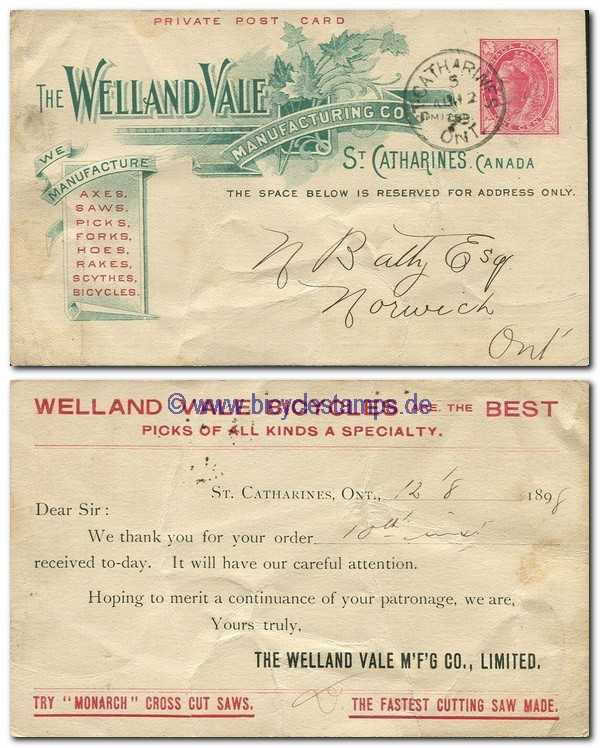 PRIVATE POST CARD
THE WELLAND VALE
MANUFACTURING CO.
ST. CATHARINES. CANADA
WE
MANUFACTURE
AXES,
SAWS,
PICKS,
FORKS,
HOES,
RAKES,
SCYTHES,
BICYCLES.
ST CATHARINES
ONT
THE SPACE BELOW IS RESERVED FOR ADDRESS ONLY.
N Batty Esq
Norwich
Ont
© www.bicyclestamps.de
WELLAND VALE BICYCLES ARE THE BEST
PICKS OF ALL KINDS A SPECIALTY.
ST. CATHARINES, ONT., 12/8 1898
Dear Sir:
We thank you for your order 10th inst
received to-day. It will have our careful attention.
Hoping to merit a continuance of your patronage, we are,
Yours truly,
THE WELLAND VALE M'F'G CO., LIMITED.
TRY "MONARCH" CROSS CUT SAWS. THE FASTEST CUTTING SAW MADE.